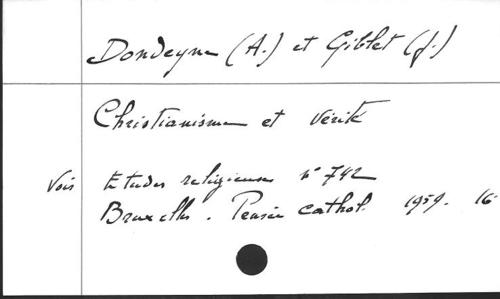 Dondeyne (A.) et Giblet (J.)
Christianisme et Vérité
Voir Etudes religieuses n° 742
Bruxelles. Pensée cathol. 1959. 16